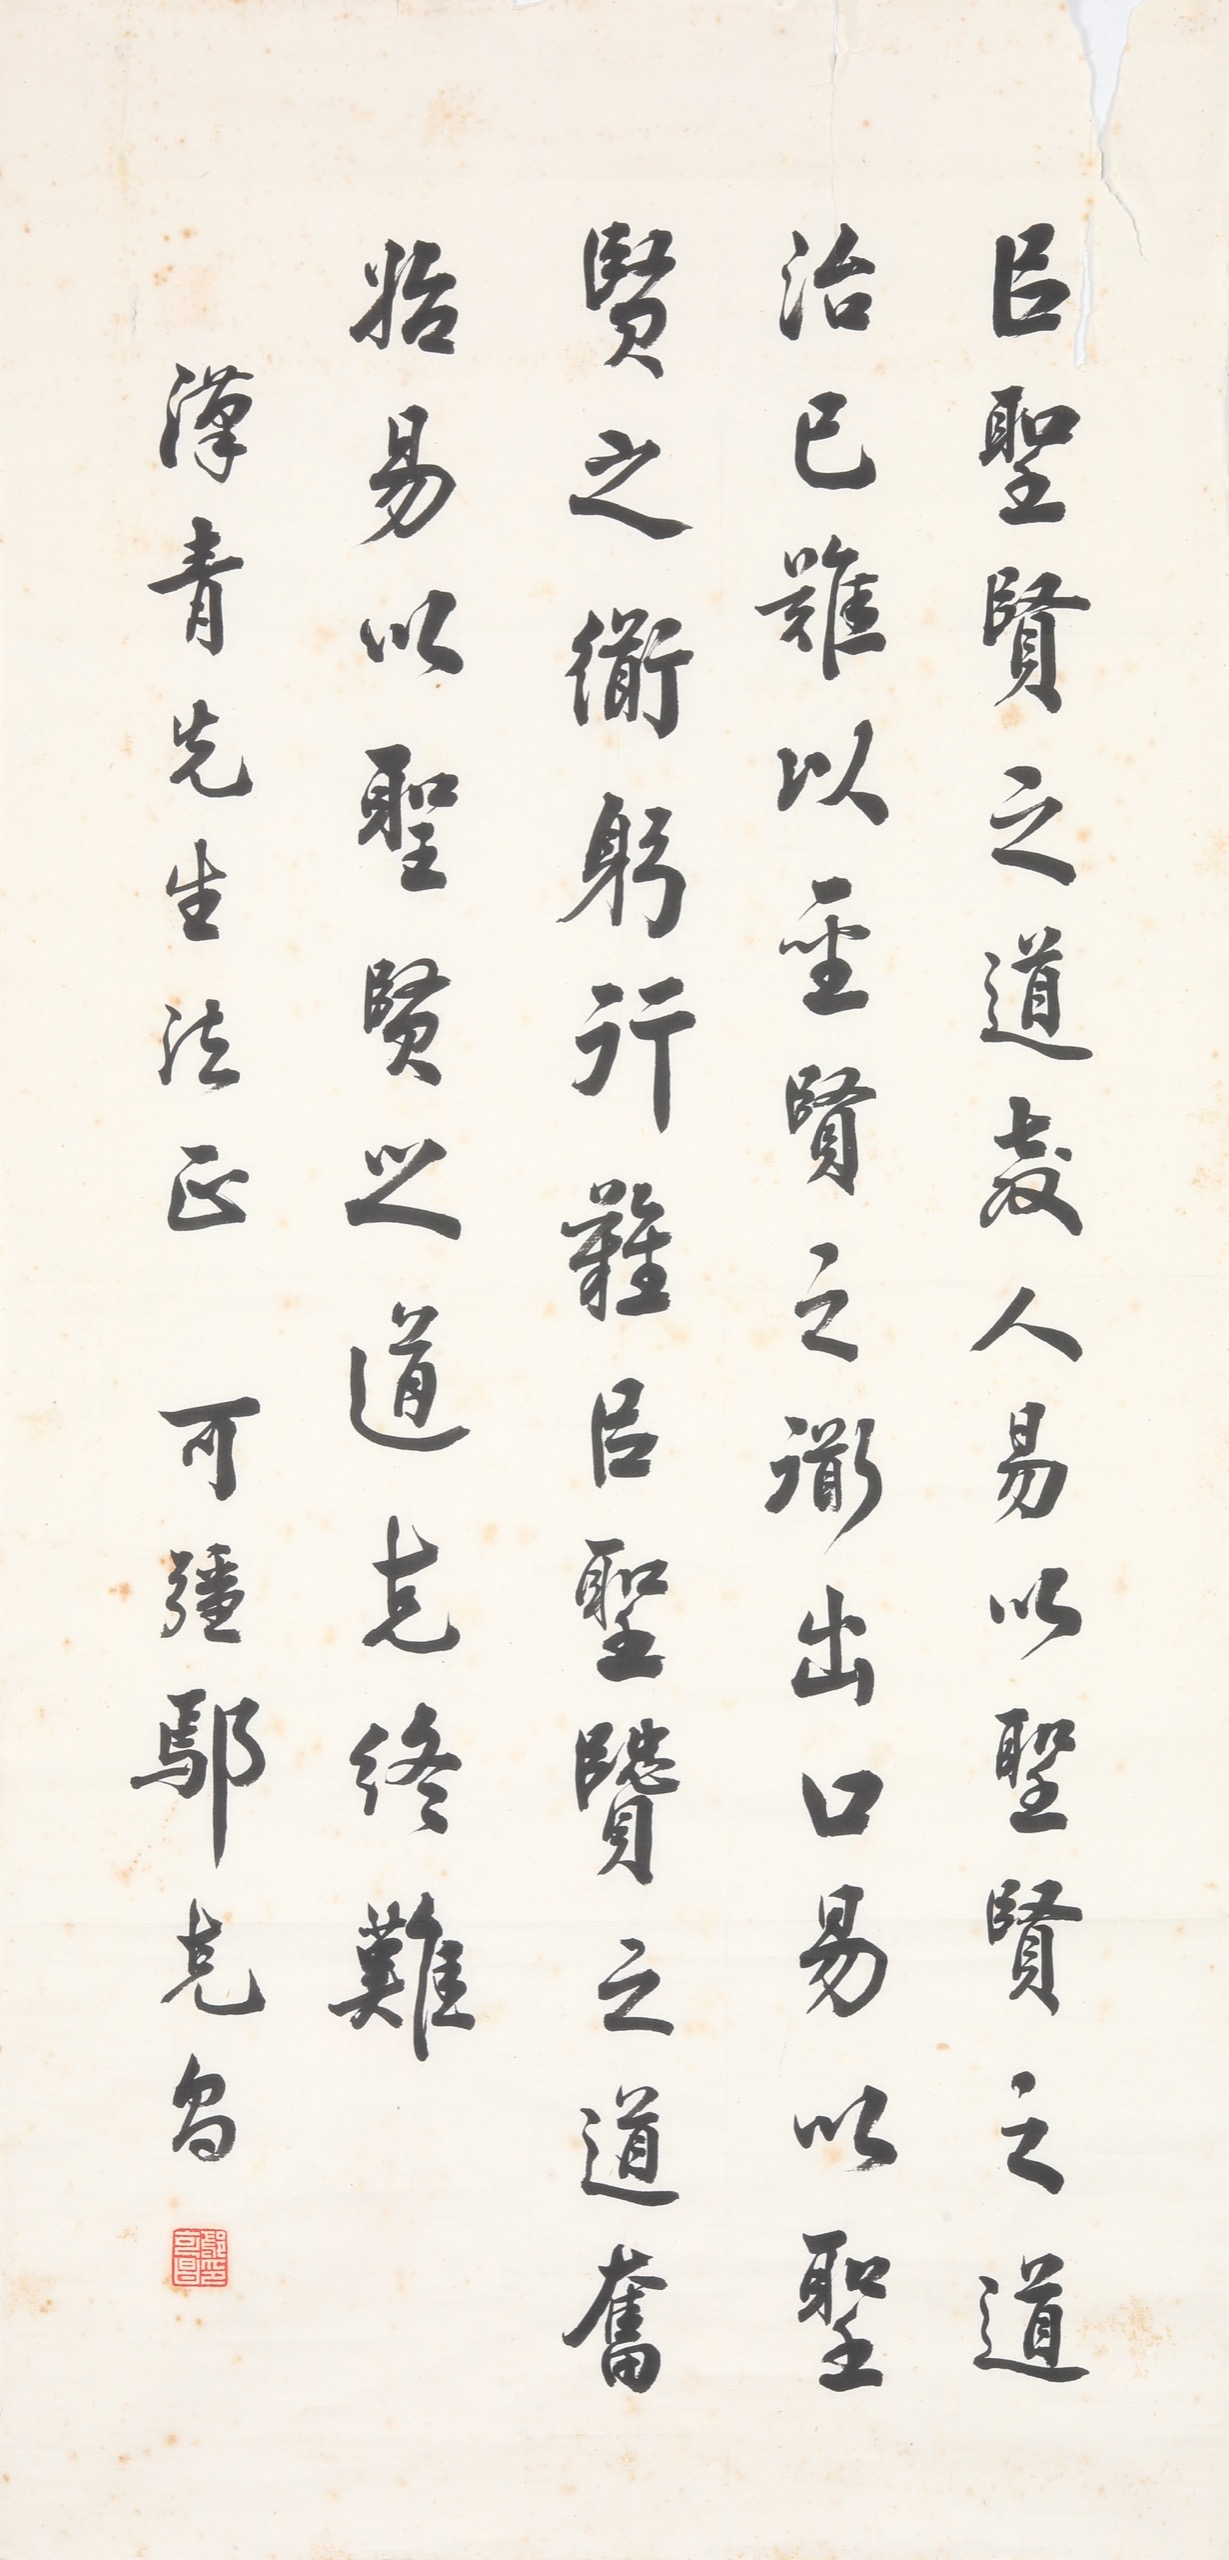 㠯聖賢之道教人易以聖賢之道
治己難以聖賢之道出口易以聖
賢之衜躬行難㠯聖賢之道奮
始易以聖賢之道克終難
漢青先生法正 可彊鄢克昌